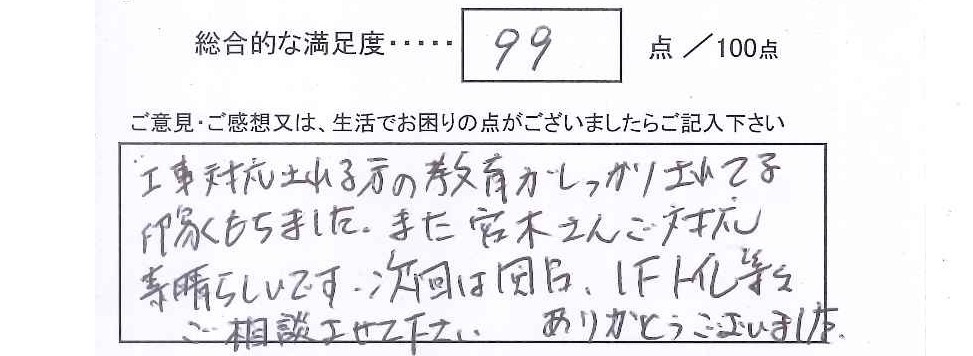 総合的な満足度・・・・・ 99 点 ／100点
ご意見・ご感想又は、生活でお困りの点がございましたらご記入下さい
工事対応される方の教育がしっかりされてる
印象もちました。また宮木さんご対応
素晴らしいです。次回は 、1Fトイレ等を
ご相談させて下さい ありがとうございました。